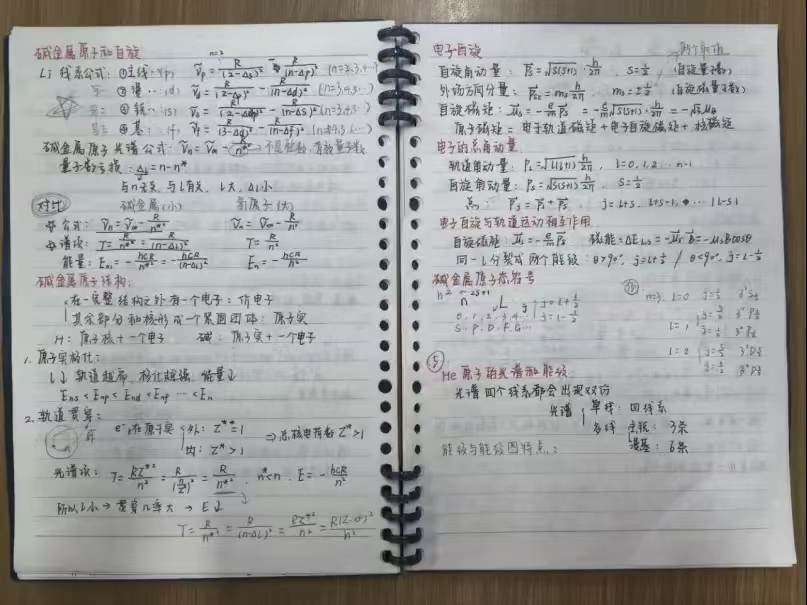 碱金属原子和自旋
n=2
Li 线系公式: ①主线: (p) ṽp = R/(2-Δs)² - R/(n-Δp)² (n=2,3,4…)
②漫…: (d) ṽd = R/(2-Δp)² - R/(n-Δd)² (n=3,4,5…)
③锐…: (s) ṽs = R/(2-Δp)² - R/(n-Δs)² (n=3,4,5…)
④基: (f) ṽf = R/(3-Δd)² - R/(n-Δf)² (n=4,5…)
碱金属原子光谱公式: ṽn = ṽ∞ - R/n*² → 不是整数, 有效量子数
量子数亏损: Δl = n - n*
与n无关, 与l有关, l大, Δl小
对比 碱金属(小) 氢原子(大)
公式: ṽn = ṽ∞ - R/n*² ṽn = ṽ∞ - R/n²
谱项: T = R/n*² = R/(n-Δl)² T = R/n²
能量: En = -hcR/n*² = -hcR/(n-Δl)² En = -hcR/n²
碱金属原子结构:
在一完整结构之外有一个电子: 价电子
其余部分和核形成一个紧固团体: 原子实
H: 原子核+一个电子 碱: 原子实+一个电子
1. 原子实极化:
l↓ 轨道越扁, 极化越强, 能量↓
Ens < Enp < End < Enf … < En
2. 轨道贯穿:
e⁻在原子实 外: Z* = 1
内: Z* > 1
⇒ 总核电荷数 Z* > 1
光谱项: T = RZ*²/n² = R/(n/Z*)² = R/n*², n* < n, E = -hcR/n*²
所以 l小 → 贯穿几率大 → E↓
T = R/n*² = R/(n-Δl)² = RZ*²/n² = R(Z-σ)²/n²
电子自旋 →两个取值
自旋角动量: Ps = √s(s+1) h/2π, s = 1/2 (自旋量子数)
外场方向分量: Psz = ms h/2π, ms = ±1/2 (自旋磁量子数)
自旋磁矩: μs = -e/m Ps = -e/m √s(s+1) h/2π = -√3 μB
原子磁矩 = 电子轨道磁矩+电子自旋磁矩+核磁矩
电子的总角动量
轨道角动量: Pl = √l(l+1) h/2π, l=0,1,2…n-1
自旋角动量: Ps = √s(s+1) h/2π, s = 1/2
总: Pj = Pl + Ps j = l+s, l+s-1, … |l-s|
电子自旋与轨道运动相互作用
自旋磁矩: μs = -e/m Ps 磁能 = ΔEls = -μs·B = -μsBcosθ
同一l分裂成两个能级: θ>90°, j=l+1/2 / θ<90°, j=l-1/2
碱金属原子态符号
n² ← 2s+1
n Lj j = l+1/2
j = l-1/2
0. 1. 2. 3. 4…
S. P. D. F. G…
例 n=3, l=0 j=1/2 3²S1/2
l=1 j=3/2 3²P3/2
j=1/2 3²P1/2
l=2 j=5/2 3²D5/2
j=3/2 3²D3/2
⑤
He 原子的光谱和能级
光谱四个线系都会出现双份
光谱 单线: 四线系
多线 主锐: 3条
漫基: 6条
能级与能级图特点: